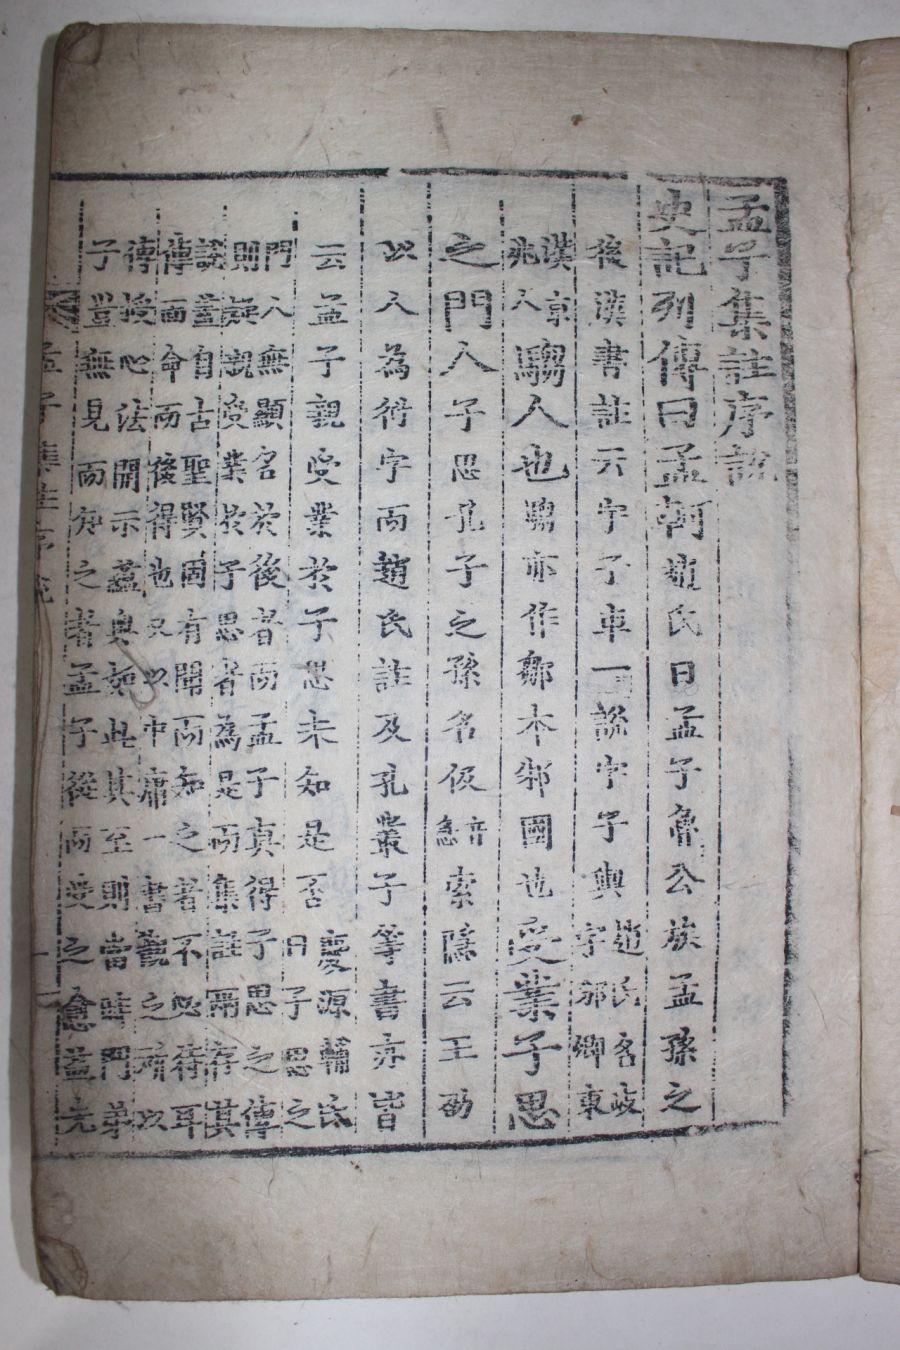 孟子集註序說
史記列傳曰孟軻趙氏曰孟子魯公族孟孫之
後漢書註云字子車一說字子輿趙氏名岐
字邠卿東
漢京
兆人騶人也騶亦作鄒本邾國也受業子思
之門人子思孔子之孫名伋音
急索隱云王劭
以人為衍字而趙氏註及孔叢子等書亦皆
云孟子親受業於子思未知是否慶源輔氏
曰子思之
門人無顯名於後者而孟子真得子思之傳
則疑親受業於子思者為是而集註兩存其
說蓋自古聖賢固有聞而知之者不必待耳
傳面命而後得也又以中庸一書觀之所以
傳授心法開示蘊奧如此其至則當時門弟
子豈無見而知之者孟子後而受之愈益光
孟子集註序說
一